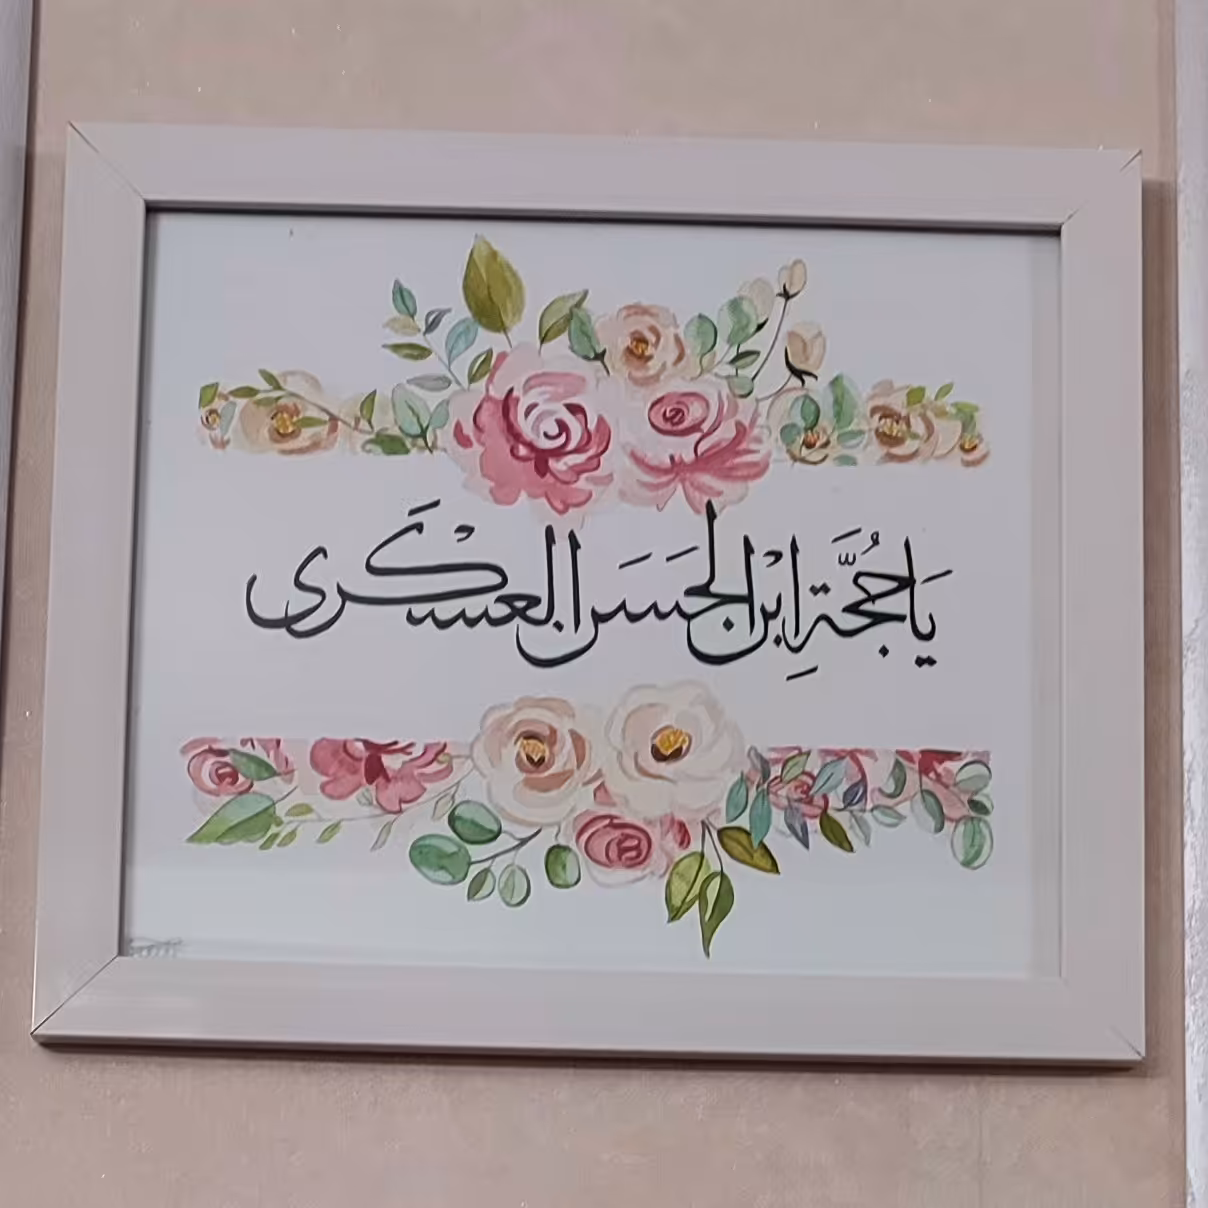 يَا حُجَّةَ ابْنِ الْحَسَنِ الْعَسْكَرى